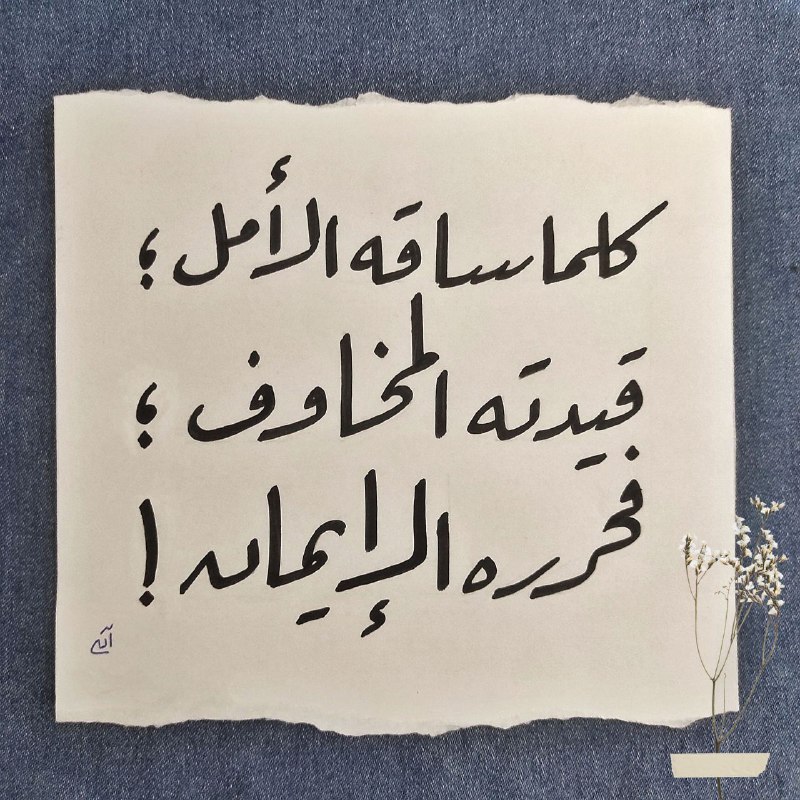 كلما ساقه الأمل؛
قيدته المخاوف؛
فحرره الإيمان!